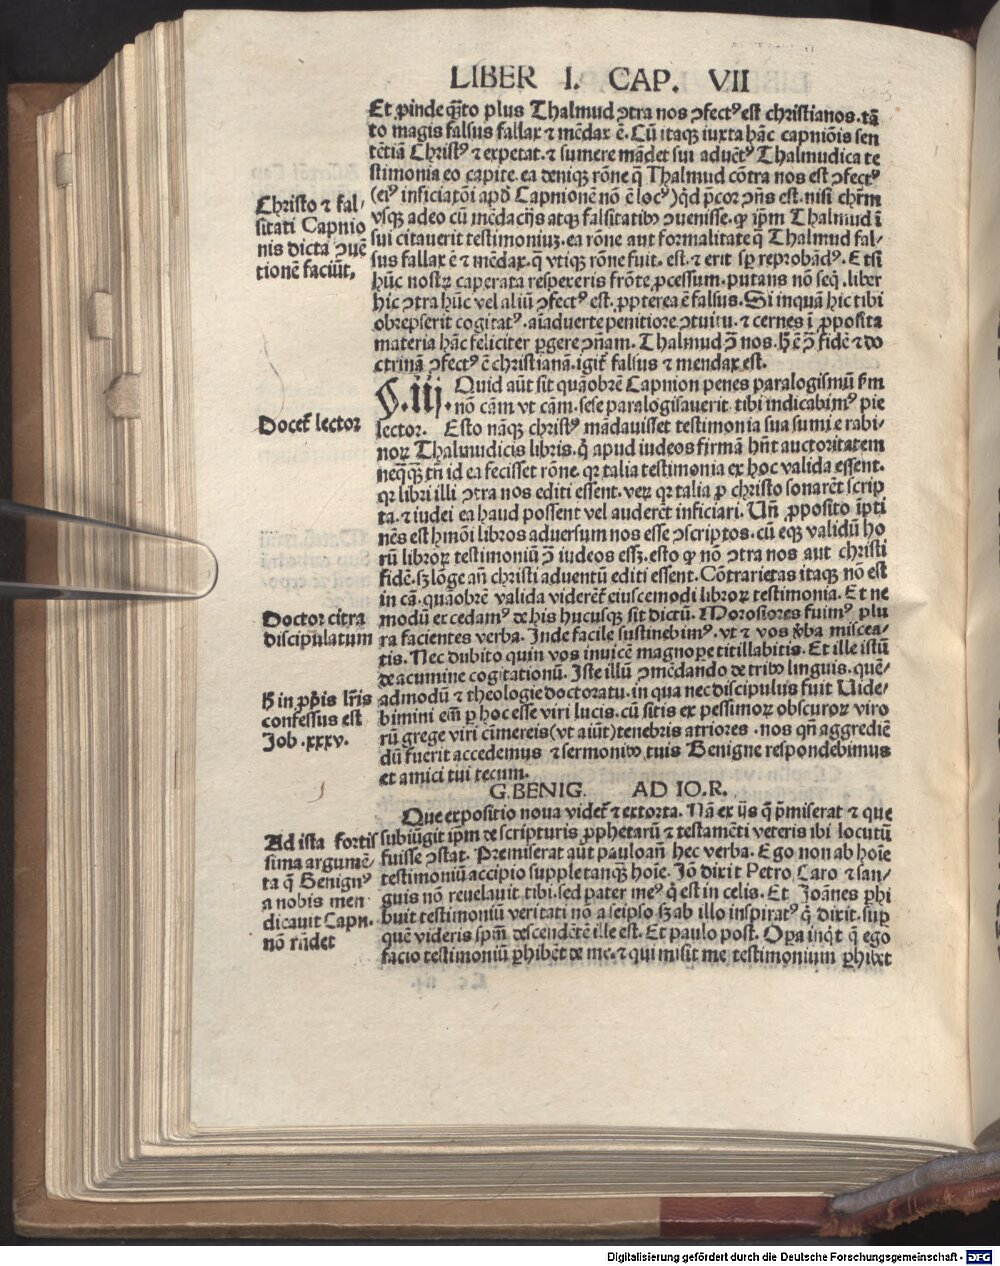 LIBER I. CAP. VII
Et ꝓinde q̃to plus Thalmud ꝯtra nos ꝯfectꝰ est christianos. tã
to magis falsus fallax ⁊ mẽdax ẽ. Cũ itaqꝫ iuxta hãc capniõis sen
tẽtiã Christꝰ ⁊ expetat. ⁊ sumere mãdet sui aduẽtꝰ Thalmudica te
stimonia eo capite. ea deniqꝫ rõne q̃ Thalmud cõtra nos est ꝯfectꝰ
(eiꝰ inficiatõi apđ Capnionẽ nõ ẽ locꝰ) qd p̃cor ꝯñs est. nisi chr̃m
vsqꝫ adeo cũ mẽdacijs atqꝫ falsitatibꝰ ꝯuenisse. ꝙ ip̃m Thalmud ĩ
sui citauerit testimoniuꝫ. ea rõne aut formalitate q̃ Thalmud fal/
sus fallax ẽ ⁊ mẽdax. q̃ vtiqꝫ rõne fuit. est. ⁊ erit sp̱ reprobãdꝰ. Etsi
hũc nostꝝ caperata respexeris frõte ꝓcessum. putans nõ seq̃. liber
hic ꝯtra hũc vel aliũ ꝯfectꝰ est. ꝓpterea ẽ falsus. Si inquã hic tibi
obrepserit cogitatꝰ. aĩaduerte penitiore ꝯtuitu. ⁊ cernes ĩ ꝓposita
materia hãc feliciter ꝑgere ꝯñam. Thalmud ꝯ̃ nos. ħ ẽ ꝯ̃ fidẽ ⁊ do
ctrinã ꝯfectꝰ ẽ christianã. igit᷑ falsus ⁊ mendax est.
§.iij. Quid aũt sit quãobrẽ Capnion penes paralogismũ ẜm
nõ cãm vt cãm. sese paralogisauerit tibi indicabimꝰ pie
lector. Esto nãqꝫ christꝰ mãdauisset testimonia sua sumi e rabi/
noꝝ Thalmudicis libris. q̇ apud iudeos firmã hñt auctoritatem
neq̃q̃ꝫ tñ id ea fecisset rõne. qꝛ talia testimonia ex hoc valida essent.
qꝛ libri illi ꝯtra nos editi essent. veꝝ qꝛ talia ꝓ christo sonarẽt scrip
ta. ⁊ iudei ea haud possent vel auderẽt inficiari. Uñ ꝓposito ip̃ti
nẽs est hmõi libros aduersum nos esse ꝯscriptos. cũ eqꝫ validũ ho
rũ libroꝝ testimoniũ ꝯ̃ iudeos essꝫ. esto ꝙ nõ ꝯtra nos aut christi
fidẽ. sꝫ lõge añ christi aduentũ editi essent. Cõtrarietas itaqꝫ nõ est
in cã. quãobrẽ valida viderẽt᷑ eiuscemodi libroꝝ testimonia. Et ne
modũ excedamꝰ de his hucusqꝫ sit dictũ. Morosiores fuimꝰ plu
ra facientes verba. Inde facile sustinebimꝰ. vt ⁊ vos v̾ba miscea/
tis. Nec dubito quin vos inuicẽ magnoꝑe titillabitis. Et ille istũ
de acumine cogitationũ. Iste illũ ꝯmẽdando de tribꝰ linguis. quẽ/
admodũ ⁊ theologie doctoratu. in qua nec discipulus fuit Uide/
bimini em̃ ꝑ hoc esse viri lucis. cũ sitis ex pessimoꝝ obscuroꝝ viro
rũ grege viri cim̃ereis (vt aiũt) tenebris atriores. nos qñ aggrediẽ
dũ fuerit accedemus ⁊ sermonibꝰ tuis Benigne respondebimus
et amici tui tecum.
G. BENIG. AD IO. R.
Que expositio noua videt᷑ ⁊ extorta. Nã ex ijs q̃ p̃miserat ⁊ que
subiũgit ip̃m de scripturis ꝓphetarũ ⁊ testamẽti veteris ibi locutũ
fuisse ꝯstat. Premiserat aũt pauloañ hec verba. Ego non ab hoĩe
testimoniũ accipio supple tanqꝫ hoĩe. Iõ dixit Petro Caro ⁊ san/
guis nõ reuelauit tibi. sed pater meꝰ q̇ est in celis. Et Joãnes ꝑhi
buit testimoniũ veritati nõ a seipso sꝫ ab illo inspiratꝰ q̇ dixit. suꝑ
quẽ videris sp̃m descendẽtẽ ille est. Et paulo post. Oꝑa inq̇t q̃ ego
facio testimoniũ ꝑhibẽt de me. ⁊ qui misit me testimonium ꝑhibet
Christo ⁊ fal/
sitati Capnio
nis dicta ꝯuẽ
tionẽ faciũt.
Docet᷑ lector
Doctor citra
discipulatum
ħ in ꝓp̃is lr̃is
confessus est
Job. xxxv.
Ad ista fortis
sima argumẽ/
ta q̃ Benignꝰ
a nobis men
dicauit Capn.
nõ rñdet
Digitalisierung gefördert durch die Deutsche Forschungsgemeinschaft - DFG